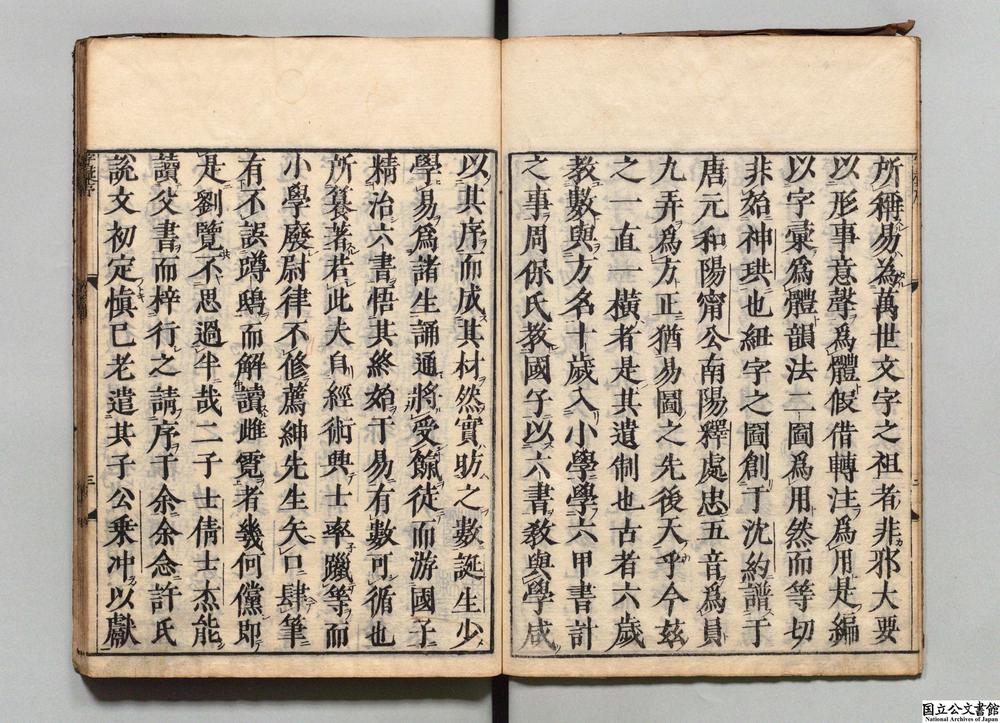 所稱易為萬世文字之祖者非邪大要
以形事意聲爲體假借轉注爲用是編
以字彙爲體韻法二圖爲用然而等切
非始神珙也紐字之圖創于沈約譜于
唐元和陽甯公南陽釋處忠五音爲員
九弄爲方正猶易圖之先後天乎今茲
之一直一橫者是其遺制也古者六歲
教數與方名十歲入小學學六甲書計
之事周保氏教國子以六書教與學咸
以其序而成其材然實昉之數誕生少
學易爲諸生誦通將受餼徒而游國子
精治六書悟其終始于易有數可循也
所纂著若此夫自經術興士率躐等而
小學廢尉律不修薦紳先生矢口肆筆
有不誤蹲鴟而解讀雌霓者幾何儻即
是劉覽不思過半哉二子士倩士杰能
讀父書而梓行之請序于余余念許氏
說文初定慎已老遣其子公乗冲以獻
三
三
国立公文書館
National Archives of Japan